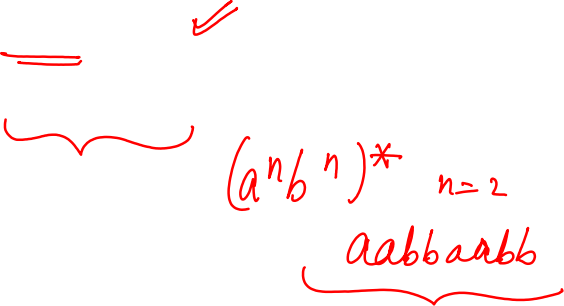 (aⁿbⁿ)* n=2
aabbaabb